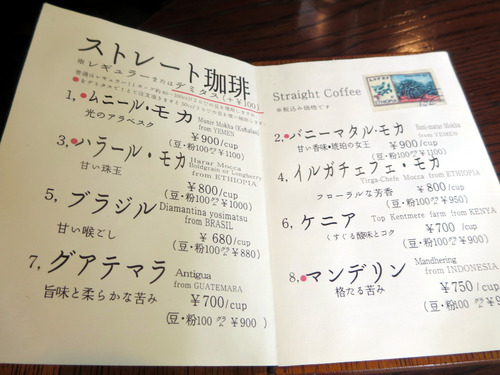 ストレート珈琲
※レギュラーまたはデミタス(+¥100)
1, ムニール・モカ
Munir Mokha
光のアラベスク
from YEMEN
¥900/cup
(豆・粉100グラム ¥1100)
3, ハラール・モカ
Harar Mocca
Boldgrain or Longberry
甘い珠玉
from ETHIOPIA
¥800/cup
(豆・粉100グラム ¥1000)
5, ブラジル
Diamantina yosimatsu
from BRASIL
甘い喉ごし
¥ 680/cup
(豆・粉100グラム ¥ 880)
7, グアテマラ
Antigua
from GUATEMARA
旨味と柔らかな苦み
¥700/cup
(豆・粉100グラム ¥ 900)
Straight Coffee
※税込み価格です
2, バニーマタル・モカ
Bani-matar Mokha
from YEMEN
甘い香味・琥珀の女王
¥900/cup
(豆・粉100グラム ¥1100)
4, イルガチェフェ・モカ
Yirga-Chefe Mocca from ETHIOPIA
フローラルな芳香
¥ 800/cup
(豆・粉100グラム ¥ 950)
6, ケニア
Top Kentmere farm from KENYA
くすぐる酸味とコク
¥700 /cup
(豆・粉100グラム ¥ 900)
8, マンデリン
Mandhering
from INDONESIA
格たる苦み
¥750/cup
(豆・粉100グラム ¥ 950)